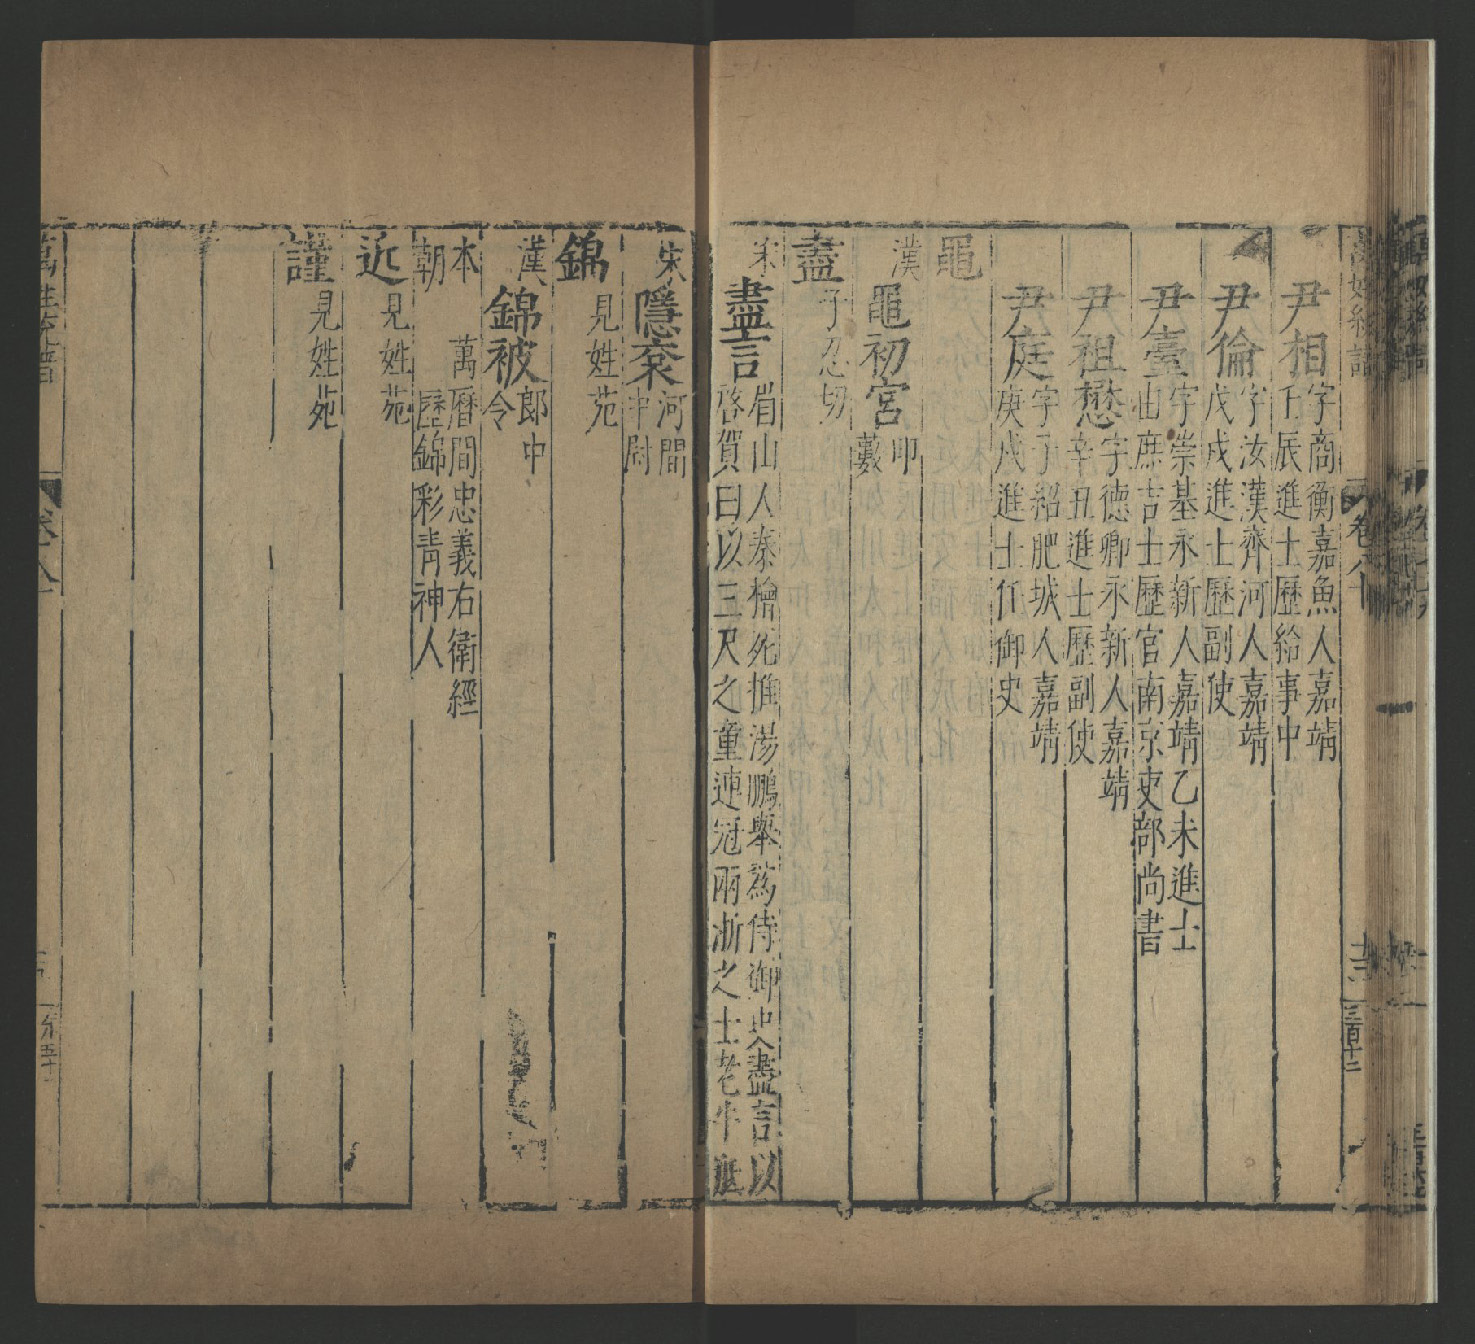 尹相字商衡嘉魚人嘉靖
壬辰進士歷給事中
尹倫字汝漢齊河人嘉靖
戊戌進士歷副使
尹臺字崇基永新人嘉靖乙未進士
由庶吉士歷官南京吏部尚書
尹祖懋字德卿永新人嘉靖
辛丑進士歷副使
尹庭字子紹肥城人嘉靖
庚戌進士任御史
黽
漢 黽初宮印
藪
盡子忍切
宋 盡言眉山人秦檜死推湯鵬舉為侍御史盡言以
啓賀曰以三尺之童連冠兩浙之士老牛舐
宋 隱褒河間
中尉
錦見姓苑
漢 錦被郎中
令
本朝 萬曆間忠義右衛經
歷錦彩青神人
近見姓苑
謹見姓苑